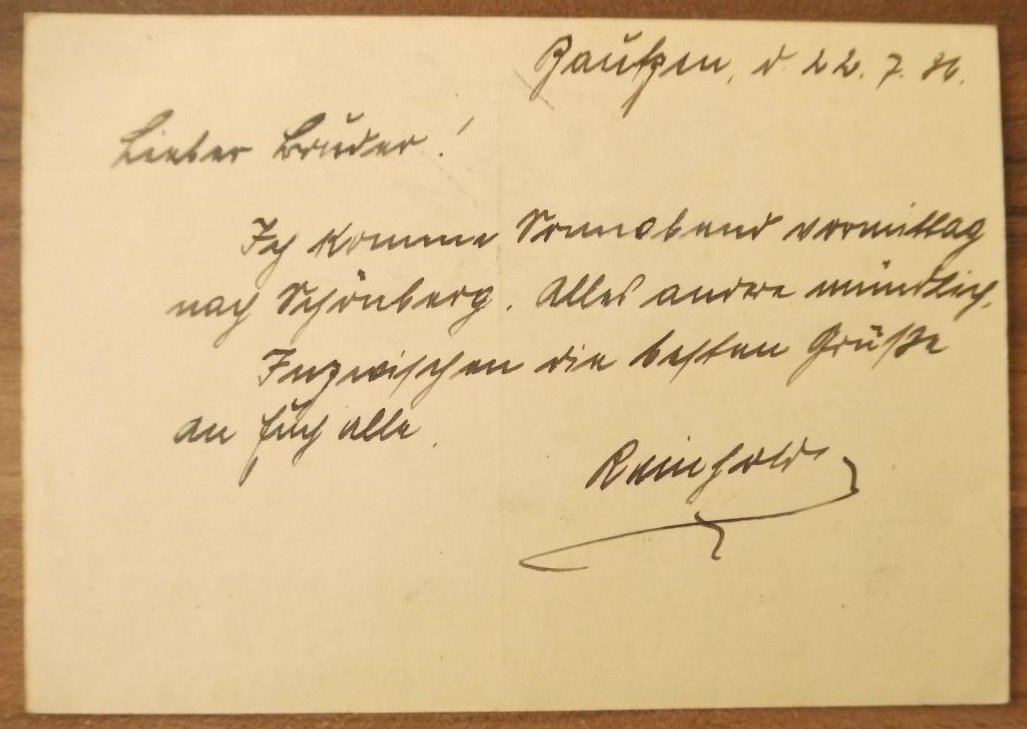 Bautzen, d. 22. 7. 36.
Lieber Bruder!
Ich komme Sonnabend vormittag
nach Schönberg. Alles andre mündlich.
Inzwischen die besten Grüße
an Euch alle.
Reinhold